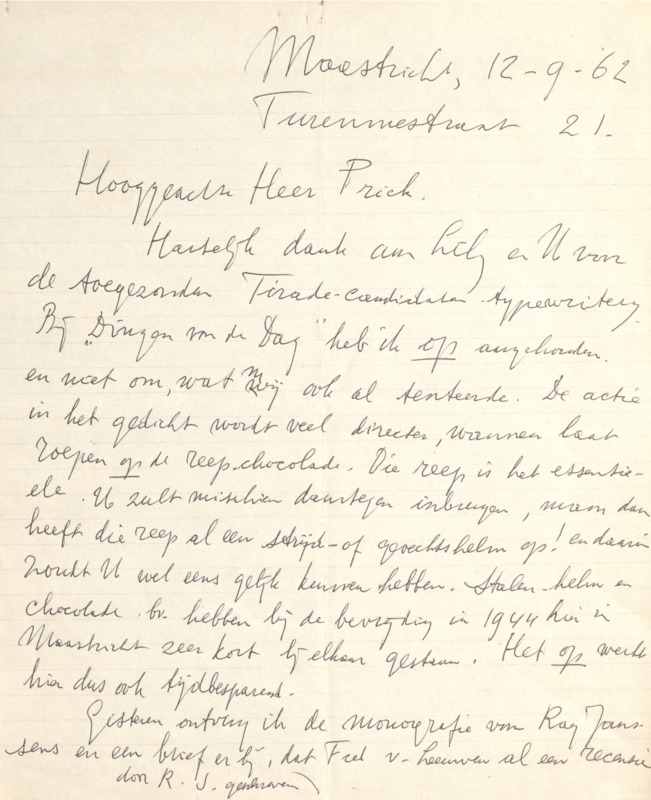 Maastricht, 12-9-'62
Turennestraat 21.
Hooggeachte Heer Prick.
Hartelijk dank aan Lily en U voor
de toegezonden Tirade-candidaten-typewriting
Bij "Dingen van de Dag" heb ik op aangehouden.
en niet om, wat mij ook al tenteerde. De actie
in het gedicht wordt veel directer, wanneer laat
roepen op de reep-chocolade. Die reep is het essentie-
ele. U zult misschien daartegen inbrengen, maar dan
heeft die reep al een strijd- of gevechtshelm op! en daarin
zoudt U wel eens gelijk kunnen hebben. Stalen-helm en
chocolade bv. hebben bij de bevrijding in 1944 hier in
Maastricht zeer kort bij elkaar gestaan. Het op werkt
hier dus ook tijdbesparend.
Gisteren ontving ik de monografie van Ray Jans-
sens en een brief er bij, dat Fred v. Leeuwen al een recensie
door R. J. geschreven